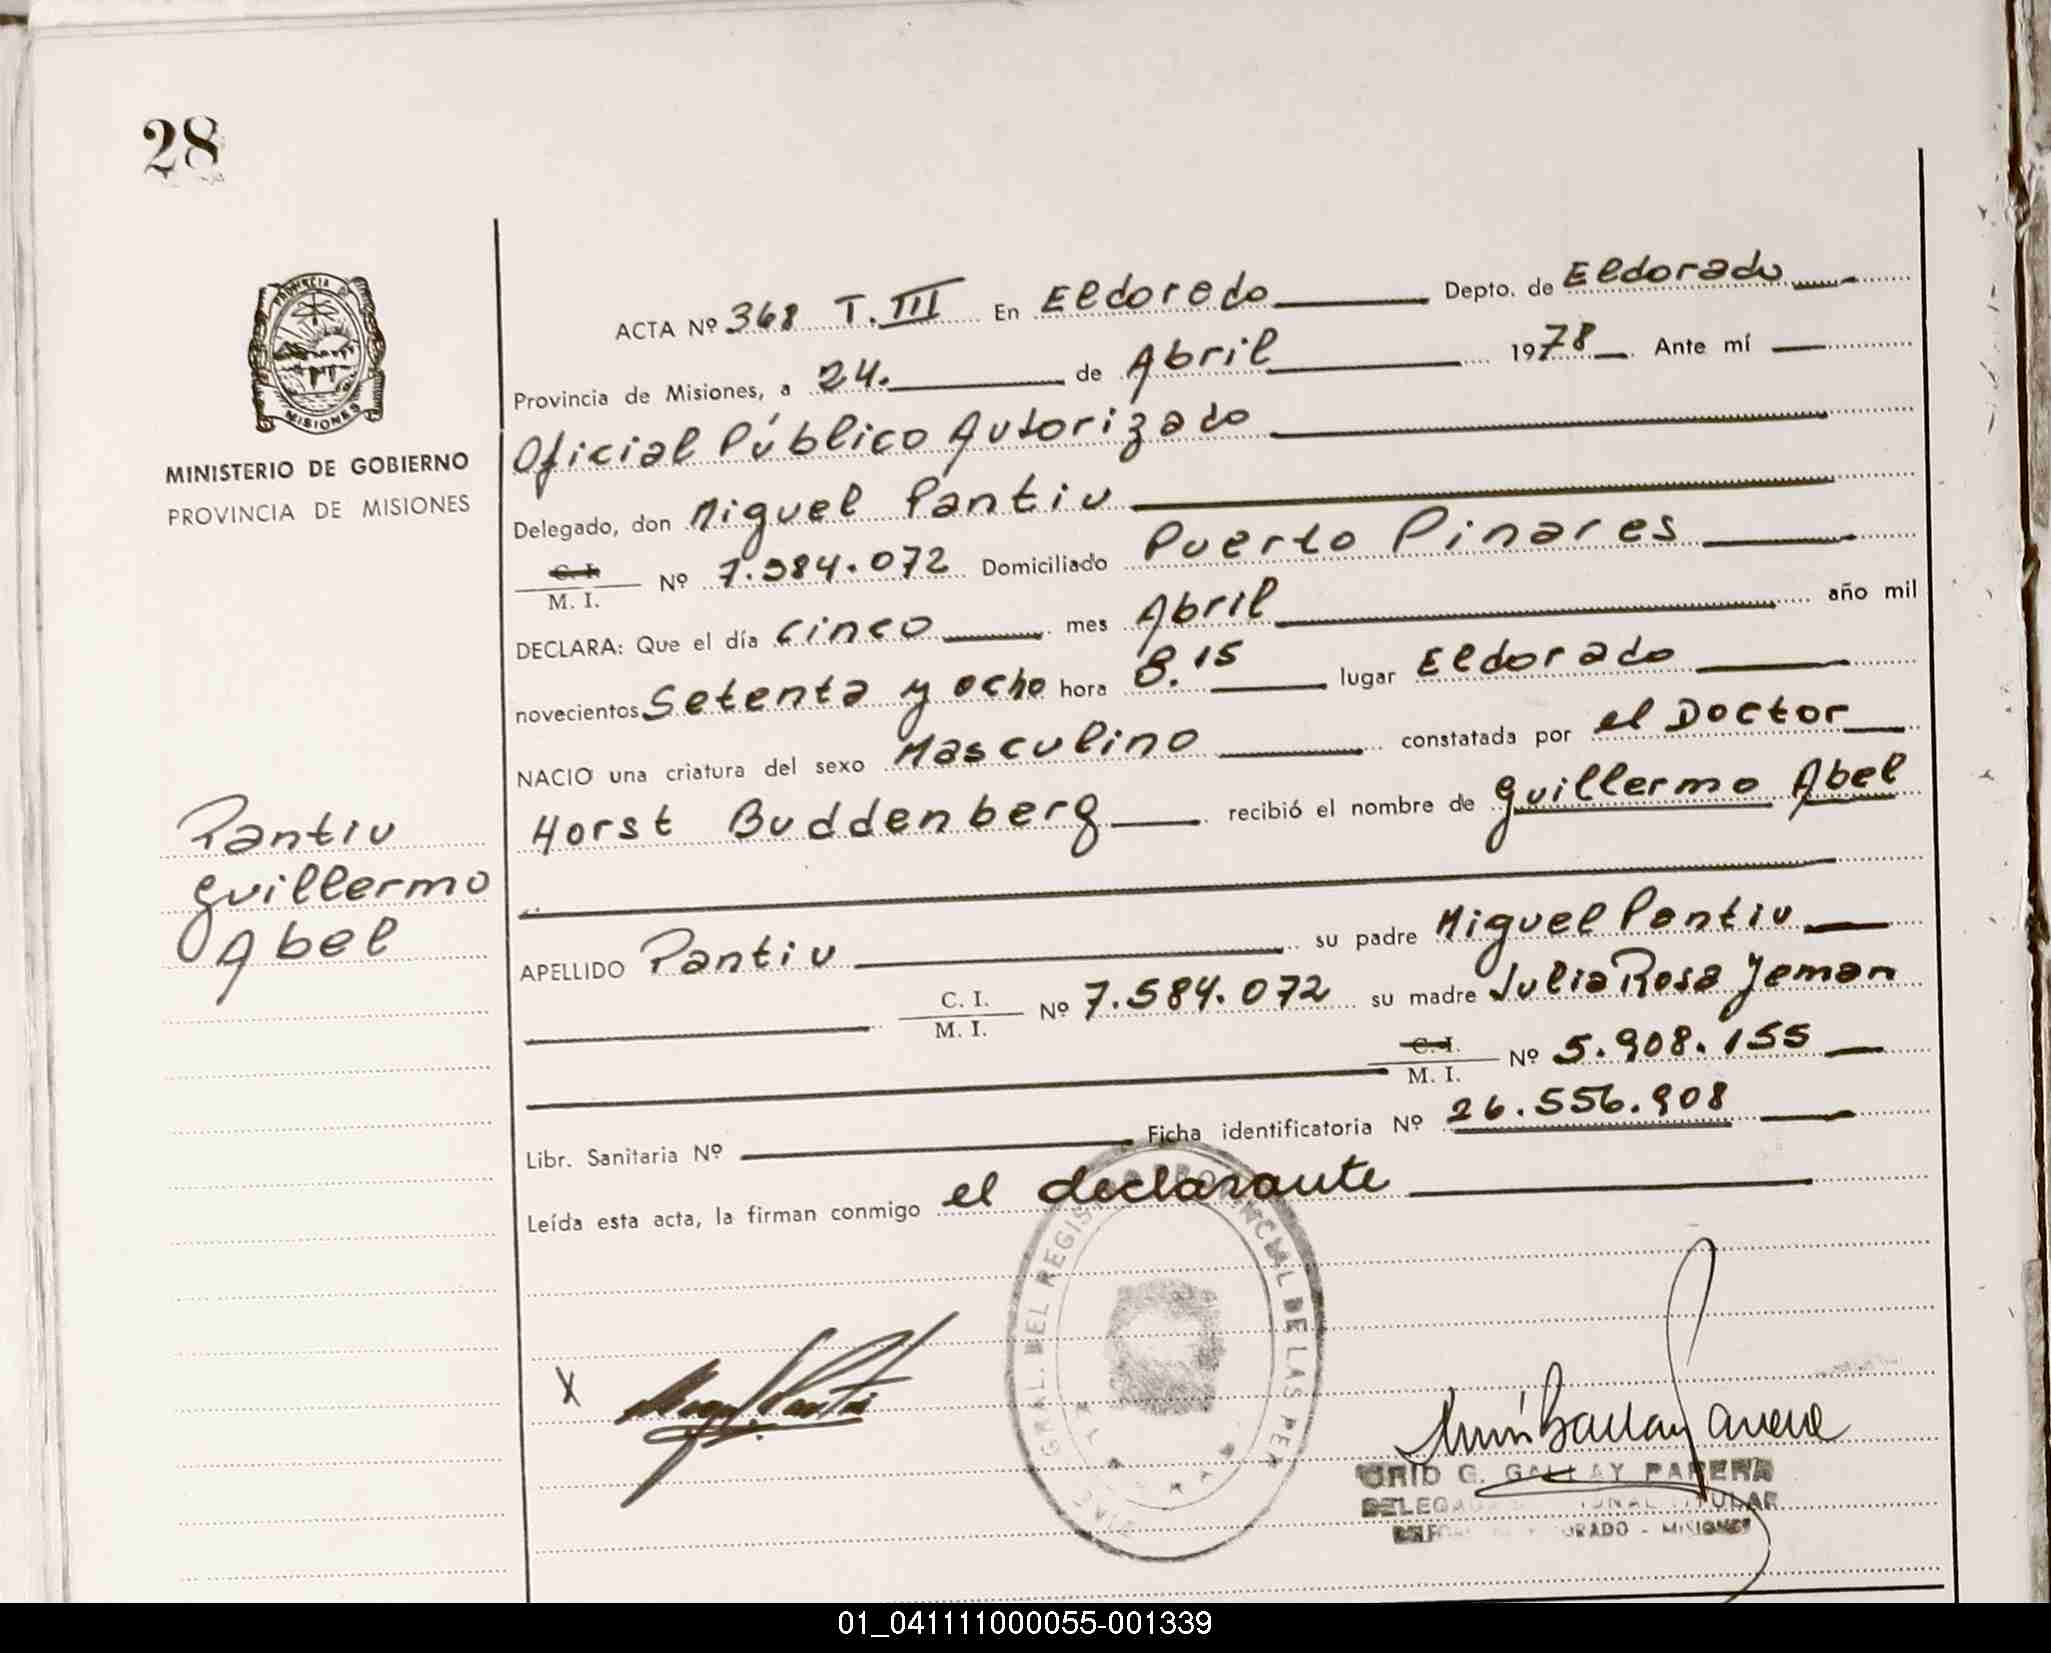 28
PROVINCIA DE
MISIONES
MINISTERIO DE GOBIERNO
PROVINCIA DE MISIONES
Pantiu
Guillermo
Abel
ACTA Nº 368 T. III En Eldorado Depto. de Eldorado
Provincia de Misiones, a 24. de Abril 1978 Ante mí
Oficial Público Autorizado
Delegado, don Miguel Pantiu
C. I. M. I. Nº 7.584.072 Domiciliado Puerto Pinares
DECLARA: Que el día cinco mes Abril año mil
novecientos Setenta y ocho hora 8.15 lugar Eldorado
NACIO una criatura del sexo Masculino constatada por el Doctor
Horst Buddenberg recibió el nombre de Guillermo Abel
APELLIDO Pantiu su padre Miguel Pantiu
C. I. M. I. Nº 7.584.072 su madre Julia Rosa Jeman
C. I. M. I. Nº 5.908.155
Libr. Sanitaria Nº Ficha identificatoria Nº 26.556.908
Leída esta acta, la firman conmigo el declarante
GRAL. DEL REGIS PROVINCIAL DE LAS PER
X Miguel Pantiu
G. GALLAY PARERA
TITULAR
MISIONES
01_041111000055-001339